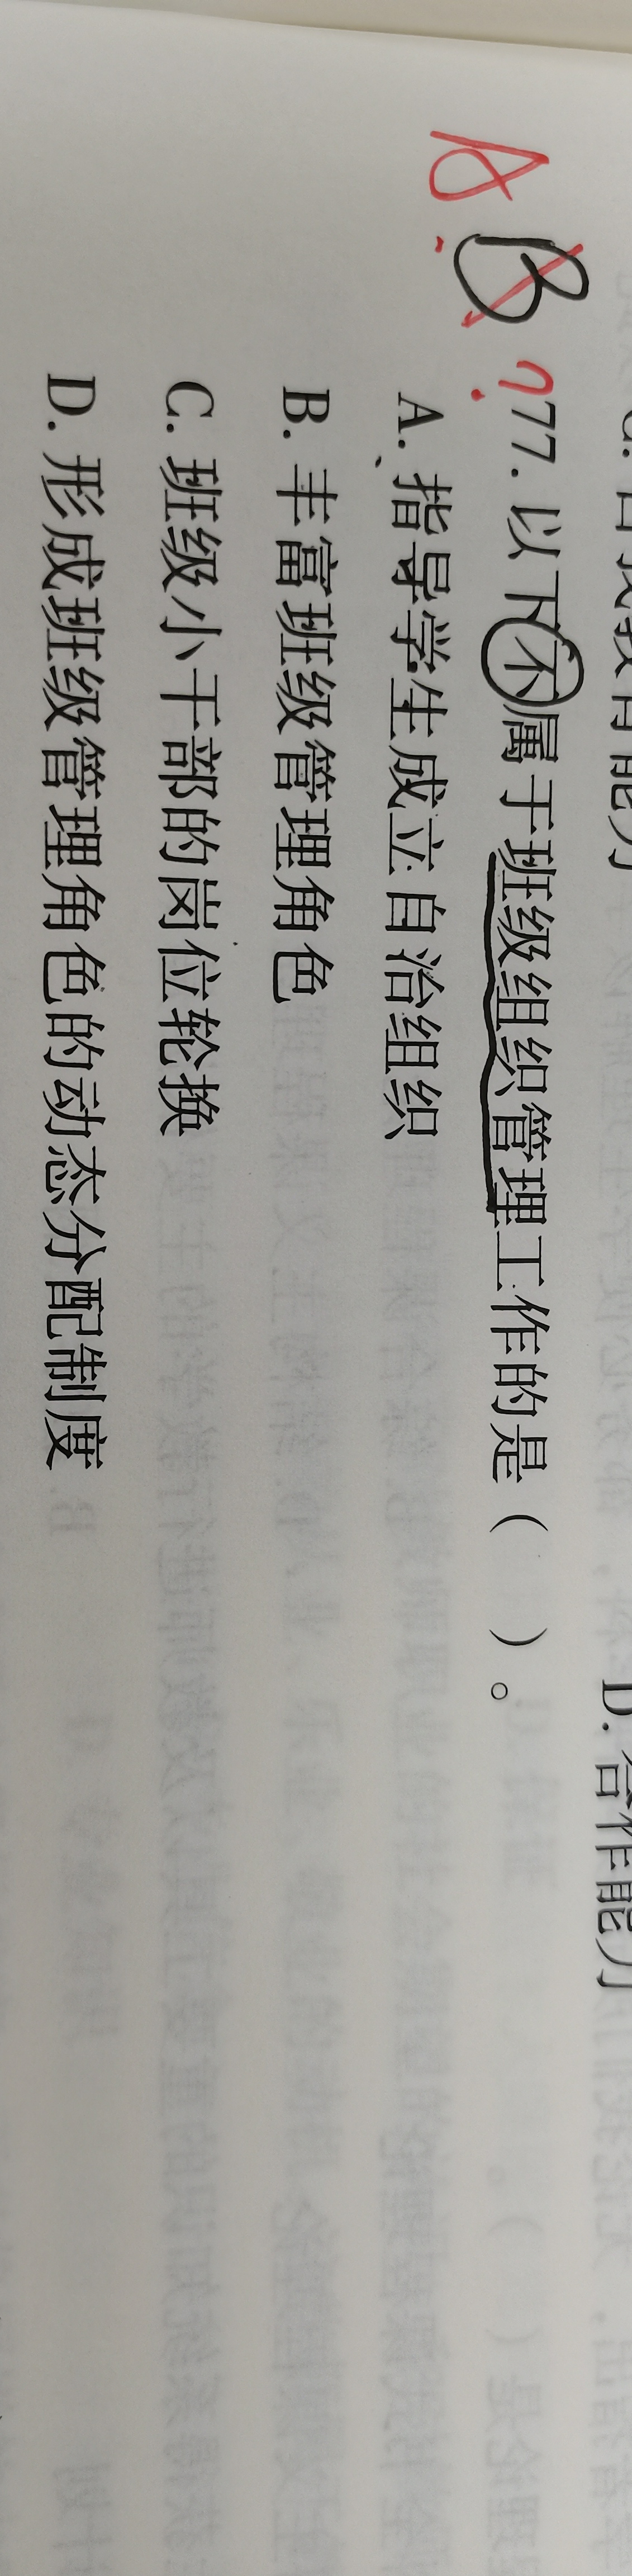 D. 合作能力
A
B
?
77. 以下不属于班级组织管理工作的是（ ）。
A. 指导学生成立自治组织
B. 丰富班级管理角色
C. 班级小干部的岗位轮换
D. 形成班级管理角色的动态分配制度